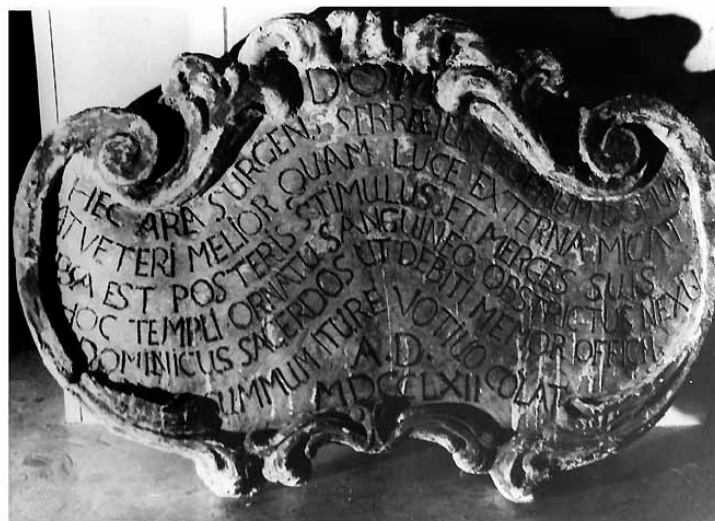 DOM
HEC ARA SURGENS SERRÆ IUS DONUM
AT VETERI MELIOR QUAM LUCE EXTERNA MICAT
IPSA EST POSTERIS STIMULUS ET MERCES SUIS
HOC TEMPLI ORNATU SANGUINEO OBSTRICTUS NEXU
DOMINICUS SACERDOS UT DEBITI MEMOR OFFICII
SUMMUM ITURE VOTIUO COLAT
A.D.
MDCCLXII